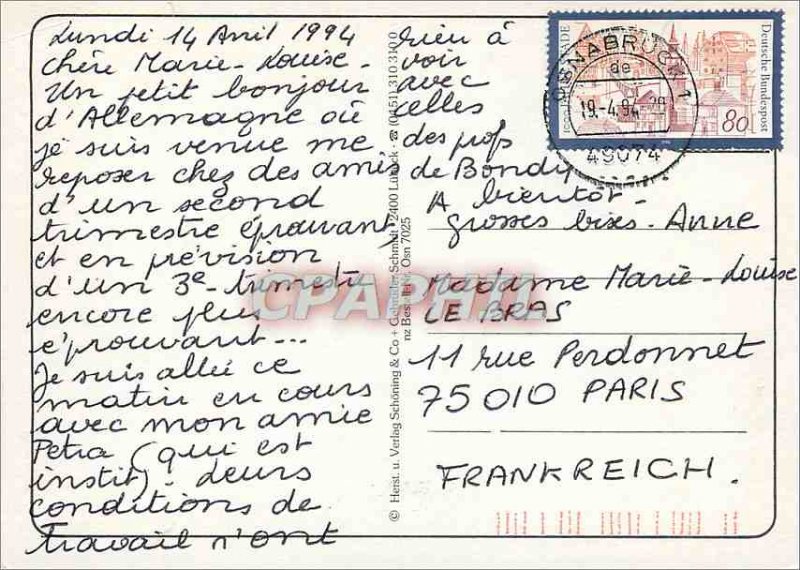 Lundi 14 Avril 1994
Chère Marie-Louise-
Un petit bonjour
d'Allemagne où
je suis venue me
reposer chez des amis
d'un second
trimestre éprouvant
et en prévision
d'un 3e trimestre
encore plus
éprouvant...
Je suis allée ce
matin en cours
avec mon amie
Petra (qui est
instit). Leurs
conditions de
travail n'ont
rien à
voir
avec
celles
des profs
de Bondy
A bientôt-
grosses bises-Anne
Madame Marie-Louise
LE BRAS
11 rue Perdonnet
75010 PARIS
FRANKREICH.
© Herst. u. Verlag Schöning & Co + Gebrüder Schmidt · 2400 Lübeck · ☎ (0451) 310 310
nz Bestell-Nr. Osn 7025
Deutsche Bundespost
80
OSNABRÜCK 1
de
19.-4.94-20
49074
CPAPHIL